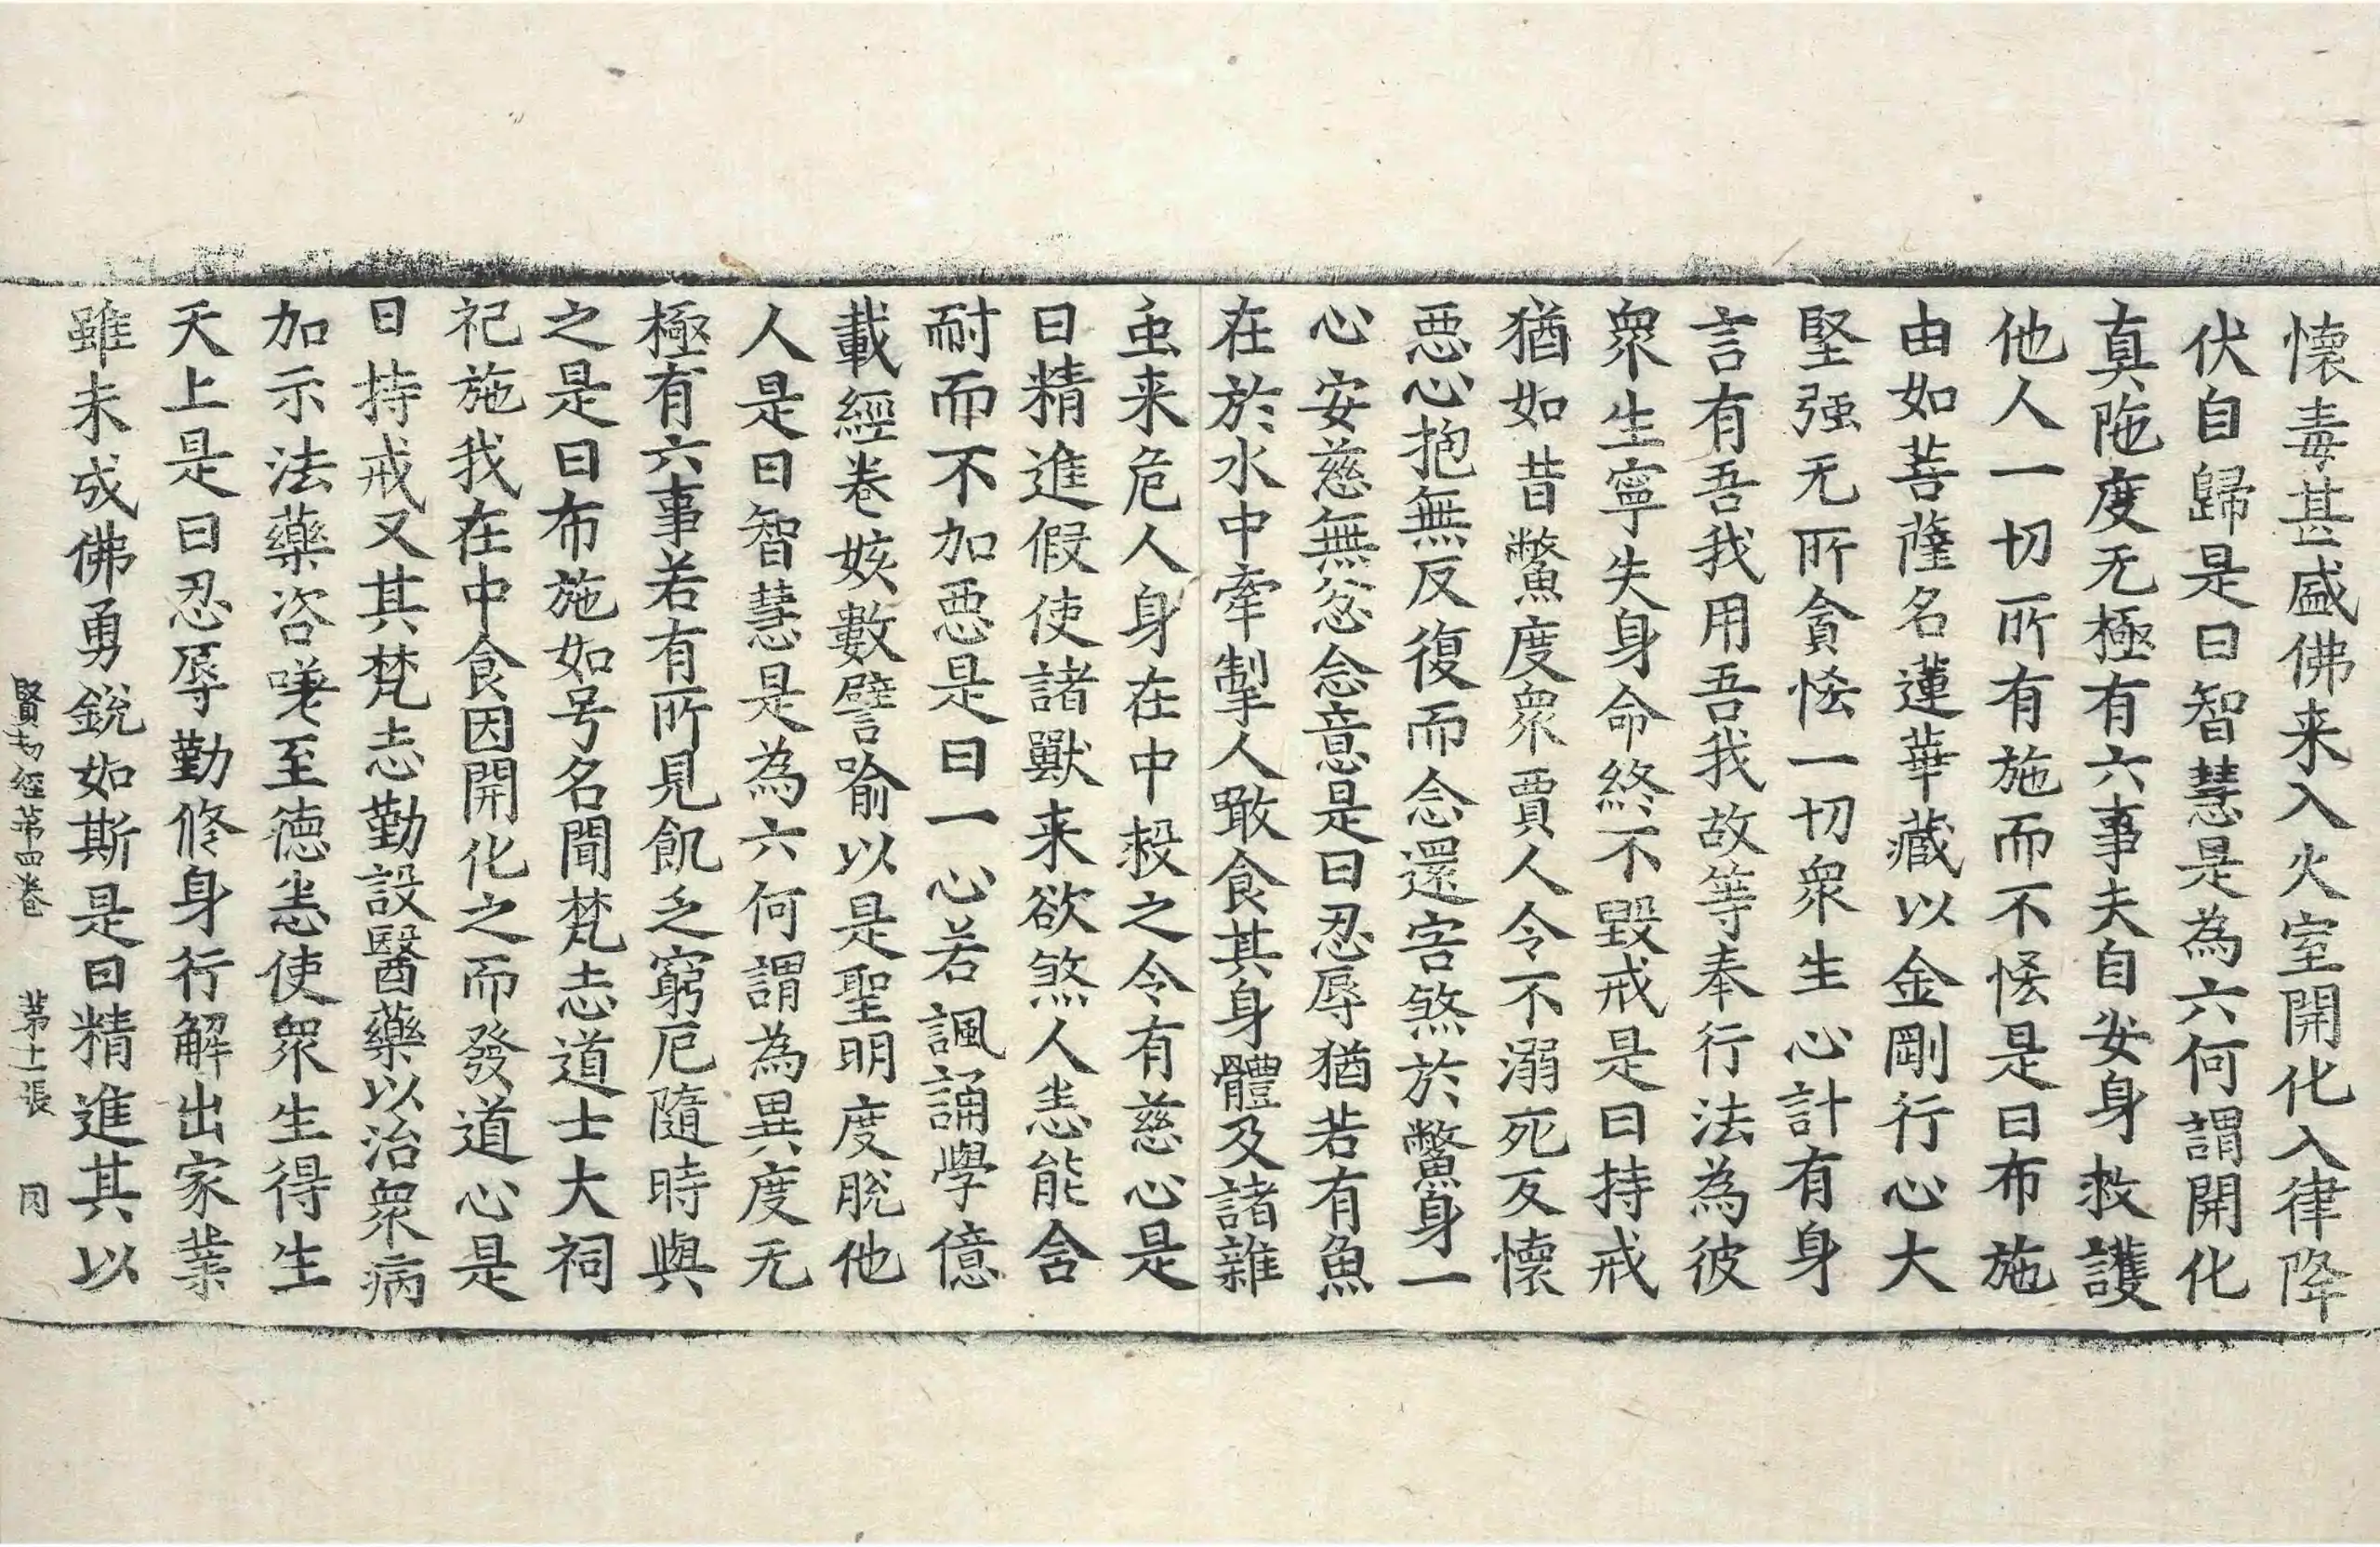 懷毒甚盛佛来入火室開化入律降
伏自歸是曰智慧是為六何謂開化
真陁度无極有六事夫自安身救護
他人一切所有施而不悋是曰布施
由如菩薩名蓮華藏以金剛行心大
堅强无所貪悋一切衆生心計有身
言有吾我用吾我故等奉行法為彼
衆生寧失身命終不毀戒是曰持戒
猶如昔鱉度衆賈人令不溺死反懷
惡心抱無反復而念還害煞於鱉身一
心安慈無忿念意是曰忍辱猶若有魚
在於水中牽掣人噉食其身體及諸雜
虫来危人身在中殺之令有慈心是
曰精進假使諸獸来欲煞人恚能含
耐而不加惡是曰一心若諷誦學億
載經卷姟數譬喻以是聖明度脫他
人是曰智慧是為六何謂為異度无
極有六事若有所見飢乏窮厄隨時與
之是曰布施如号名聞梵志道士大祠
祀施我在中食因開化之而發道心是
曰持戒又其梵志勤設醫藥以治衆病
加示法藥咨嗟至德恚使衆生得生
天上是曰忍辱勤修身行解出家業
雖未成佛勇銳如斯是曰精進其以
賢劫經第四卷 第十二張 同